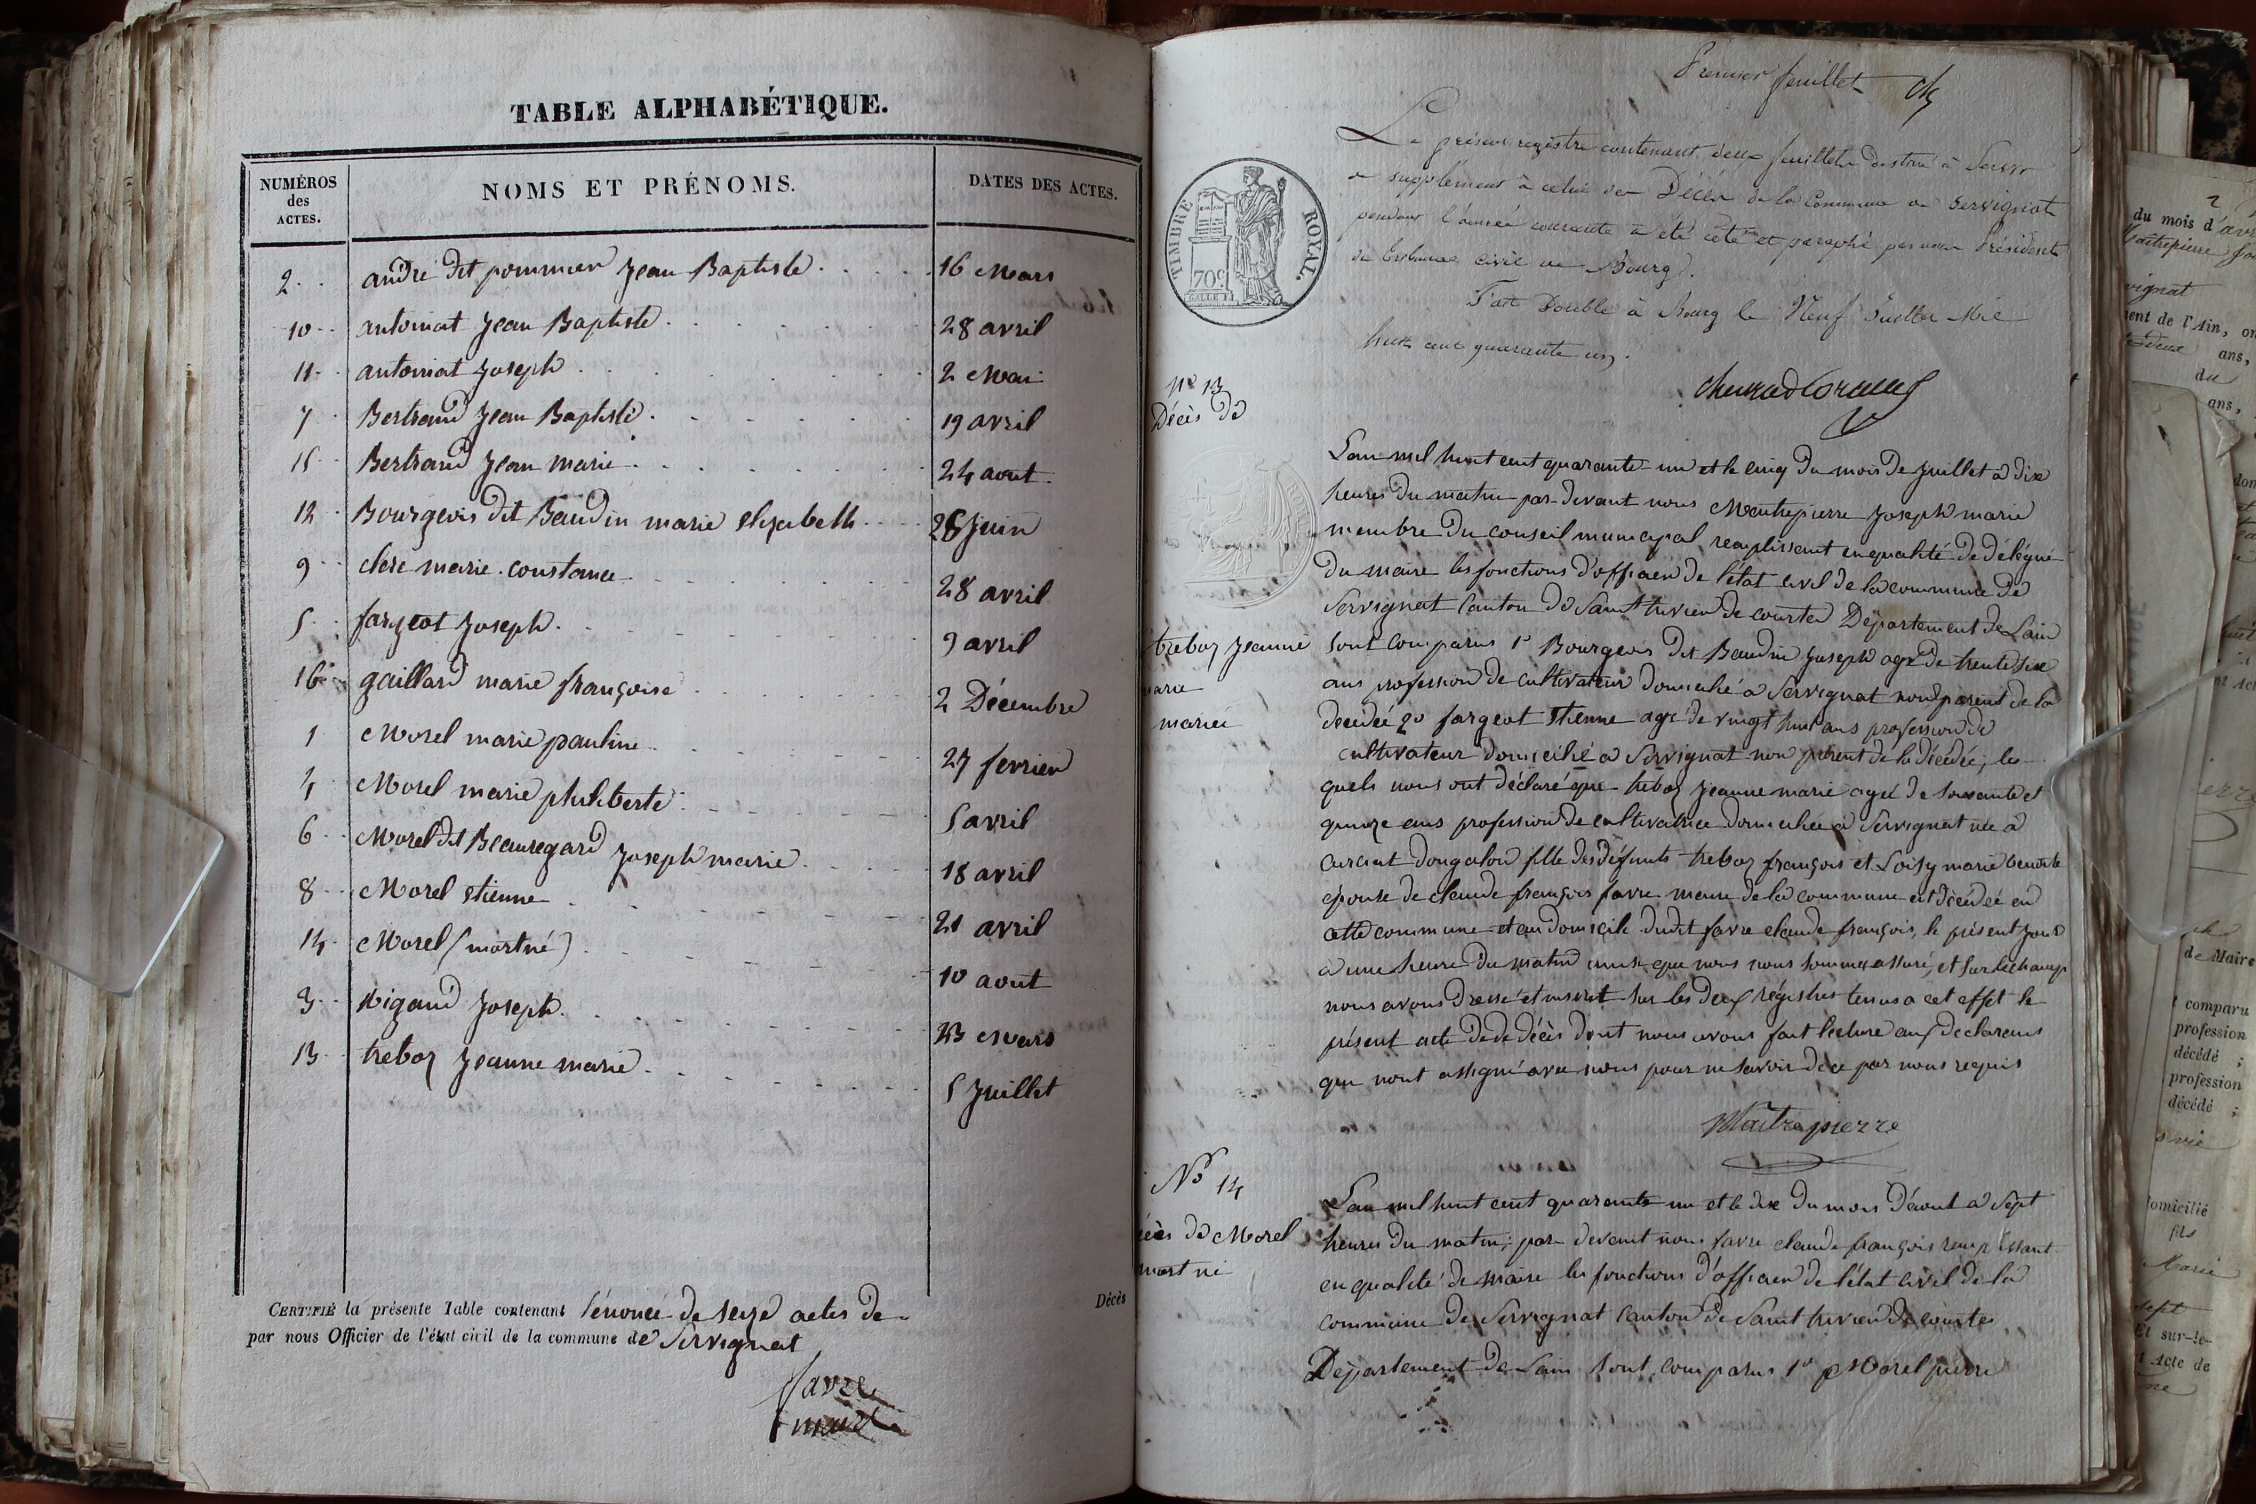 TABLE ALPHABÉTIQUE.
NUMÉROS des ACTES.
NOMS ET PRÉNOMS.
DATES DES ACTES.
2 andré dit pommier Jean Baptiste 16 Mars
10 antoinat Jean Baptiste 28 avril
11 antoinat Joseph 2 Mai
7 Bertrand Jean Baptiste 19 avril
15 Bertrand Jean marie 24 aout
12 Bourgeois dit Baudin marie elisabeth 26 Juin
9 clere marie constance 28 avril
5 fargeot Joseph 9 avril
16 gaillard marie françoise 2 Décembre
1 Morel marie pauline 27 fevrier
4 Morel marie philiberte 5 avril
6 Morel dit Beauregard Joseph marie 18 avril
8 Morel etienne 21 avril
14 Morel (mort né) 10 aout
3 Rigaud Joseph 23 Mars
13 treboz Jeanne marie 5 Juillet
CERTIFIÉ la présente Table contenant l'énoncé de seize actes de Décès
par nous Officier de l'état civil de la commune de Servignat
favre
maire
Premier feuillet
Le présent registre contenant deux feuillets destiné à Servir
de supplément à celui des Décès de la Commune de Servignat
pendant l'année courante a été coté et paraphé par nous Président
du Tribunal civil de Bourg.
Fait Double à Bourg le Neuf Juillet Mil
huit cent quarante un.
TIMBRE ROYAL.
70c
N° 13
Décès de
treboz Jeanne
marie
mariée
L'an mil huit cent quarante un et le cinq du mois de Juillet à dix
heures du matin par devant nous Maitrepierre Joseph marie
membre du conseil municipal remplissant en qualité de délégué
du maire les fonctions d'officier de l'état civil de la commune de
Servignat Canton de Saint trivier de courtes Département de L'ain
sont comparus 1° Bourgeois dit Baudin Joseph agé de trente six
ans profession de cultivateur domicilié à Servignat non parent de la
décédée 2° fargeot Etienne agé de vingt huit ans profession de
cultivateur domicilié à Servignat non parent de la décédée, les
quels nous ont déclaré que treboz Jeanne marie agée de soixante et
quinze ans profession de cultivatrice domiciliée à Servignat née à
curciat dongalon fille des défunts treboz françois et Loisy marie benoite
épouse de claude françois favre maire de la commune est décédée en
cette commune et au domicile dudit favre claude françois, le présent jour
à une heure du matin ainsi que nous nous sommes assuré, et sur le champ
nous avons dressé et inscrit sur les deux régistres tenus a cet effet le
présent acte de de décès dont nous avons fait lecture aux declarans
qui n'ont assigné avec nous pour ne savoir de ce par nous requis
Maitrepierre
N° 14
décès de Morel
mort né
L'an mil huit cent quarante un et le dix du mois d'aout à Sept
heures du matin; par devant nous favre claude françois remplissant
en qualité de maire les fonctions d'officier de l'état civil de la
commune de Servignat Canton de Saint trivier de courtes
Département de L'ain sont comparus 1° Morel pierre
2
du mois d'avr
Maitrepierre Jo
vignat
ent de l'Ain, on
ans,
du
ans,
de Maire
comparu
profession
décédé ;
profession
décédé ;
domicilié
fils
Marie
sept
Et sur-le-
Acte de